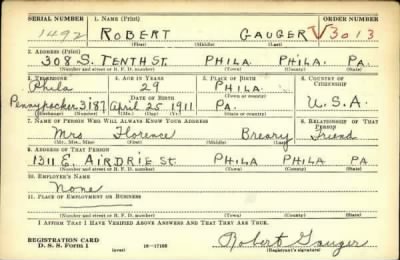 SERIAL NUMBER 1. NAME (Print) ORDER NUMBER
1492 ROBERT GAUGER V3013
(First) (Middle) (Last)
2. ADDRESS (Print)
308 S. TENTH ST. PHILA. PHILA. PA.
(Number and street or R. F. D. number) (Town) (County) (State)
3. TELEPHONE 4. AGE IN YEARS 5. PLACE OF BIRTH 6. COUNTRY OF CITIZENSHIP
Phila 29 PHILA.
DATE OF BIRTH
Pennypacker 3187 April 25 1911 PA. U.S.A.
(Exchange) (Number) (Mo.) (Day) (Yr.) (State or country)
7. NAME OF PERSON WHO WILL ALWAYS KNOW YOUR ADDRESS 8. RELATIONSHIP OF THAT PERSON
Mrs Florence Breary Friend
(Mr., Mrs., Miss) (First) (Middle) (Last)
9. ADDRESS OF THAT PERSON
1311 E. AIRDRIE ST. PHILA PHILA PA
(Number and street or R. F. D. number) (Town) (County) (State)
10. EMPLOYER'S NAME
None
11. PLACE OF EMPLOYMENT OR BUSINESS
(Number and street or R. F. D. number) (Town) (County) (State)
I AFFIRM THAT I HAVE VERIFIED ABOVE ANSWERS AND THAT THEY ARE TRUE.
REGISTRATION CARD
D. S. S. Form 1 (over) 16—17105 Robert Gauger
(Registrant's signature)